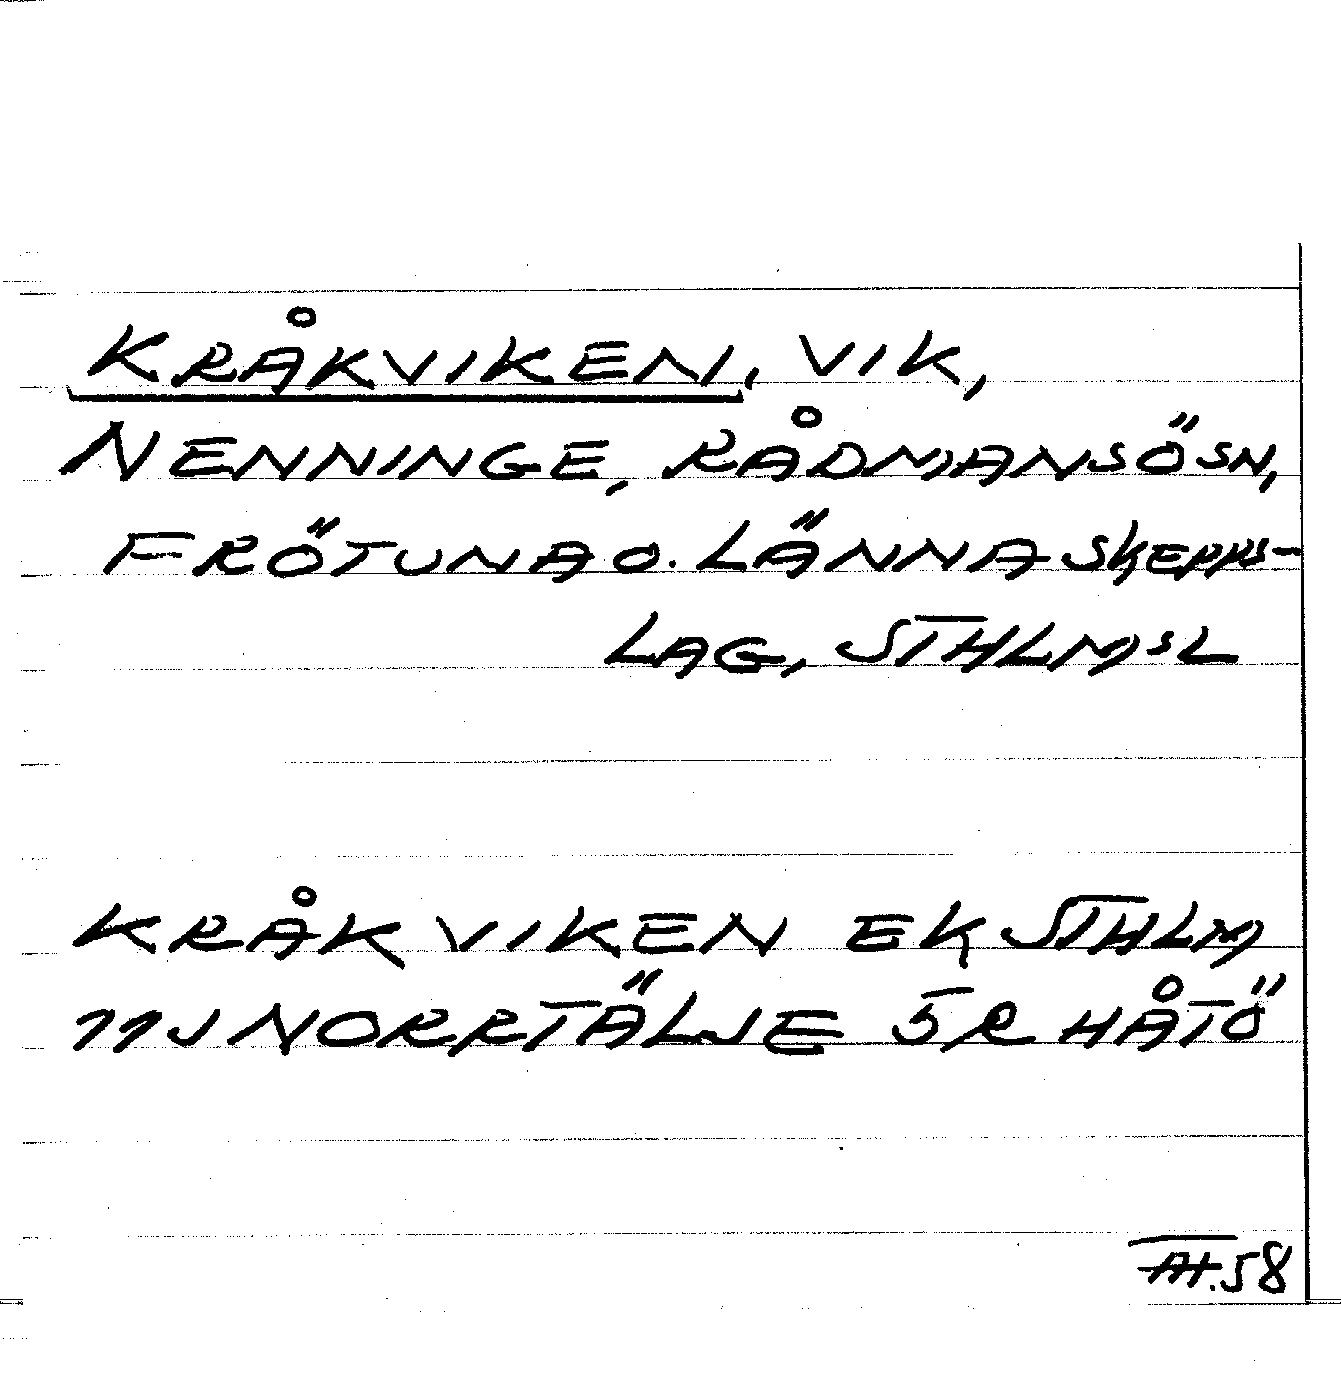 KRÅKVIKEN, VIK,
NENNINGE, RÅDMANSÖ SN,
FRÖTUNA O. LÄNNA SKEPPS-
LAG, STHLMSL
KRÅKVIKEN EK STHLM
11J NORRTÄLJE 5R HÅTÖ
58